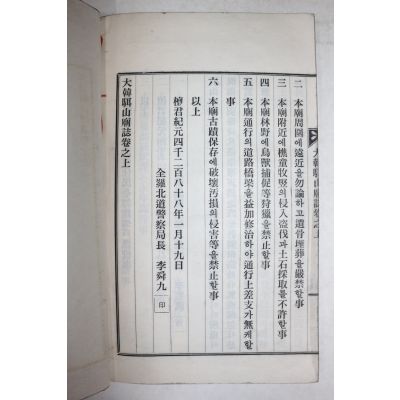 大韓馹山廟誌卷之上
二 本廟周圍에遠近을勿論하고遺骨埋葬을嚴禁할事
三 本廟附近에樵童牧竪의侵入盜伐과土石採取를不許할事
四 本廟林野에鳥獸捕捉等狩獵을禁止할事
五 本廟通行의道路橋梁을益加修治하야通行上差支가無케할
事
六 本廟古蹟保存에破壞汚損의侵害等을禁止할事
以上
檀君紀元四千二百八十八年一月十九日
全羅北道警察局長 李舜九 印
大韓馹山廟誌卷之上